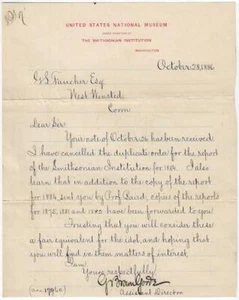 UNITED STATES NATIONAL MUSEUM
UNDER DIRECTION OF
THE SMITHSONIAN INSTITUTION
WASHINGTON
October 28, 1886
Esq
West Winsted
Conn
Dear Sir:
Your note of October 26 has been received.
I have cancelled the duplicate order for the report
of the Smithsonian Institution for 1884. I also
learn that in addition to the copy of the report
for 1884 sent you by Prof. Baird, copies of the reports
for 1880, 1881 and 1882 have been forwarded to you.
Trusting that you will consider these
a fair equivalent for the idol, and hoping that
you will find in them matters of interest
I am,
Yours respectfully,
G. Brown Goode
Assistant Director